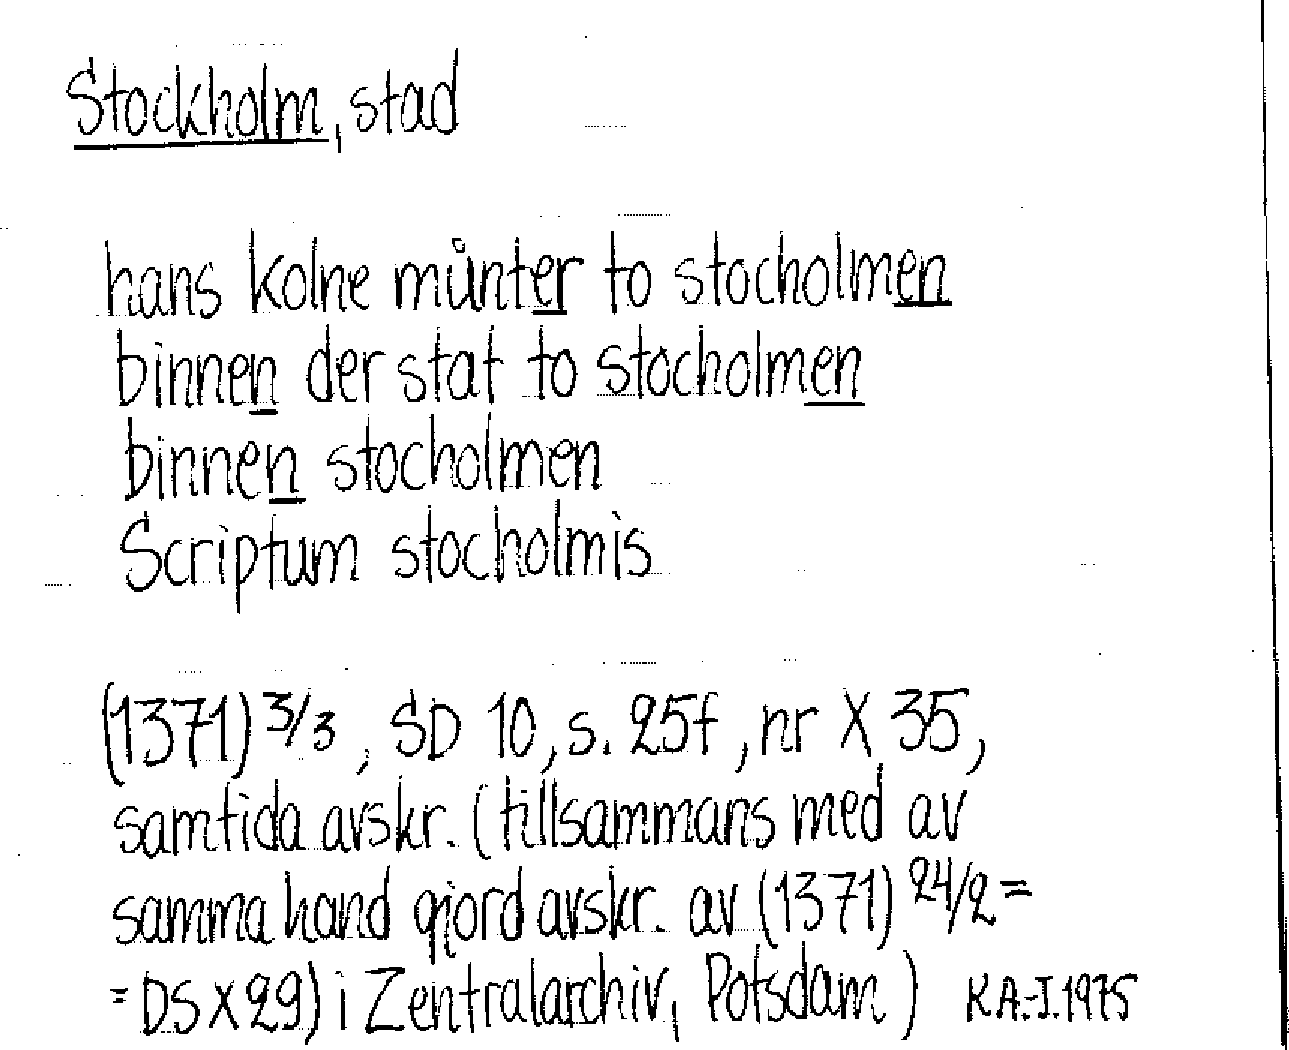 Stockholm, stad
hans kolne münter to stocholmen
binnen der stat to stocholmen
binnen stocholmen
Scriptum stocholmis
(1371) 3/3, SD 10, s. 25f, nr X 35,
samtida avskr. (tillsammans med av
samma hand gjord avskr. av (1371) 24/2 =
= DS X 29) i Zentralarchiv, Potsdam) KA.-I.1975